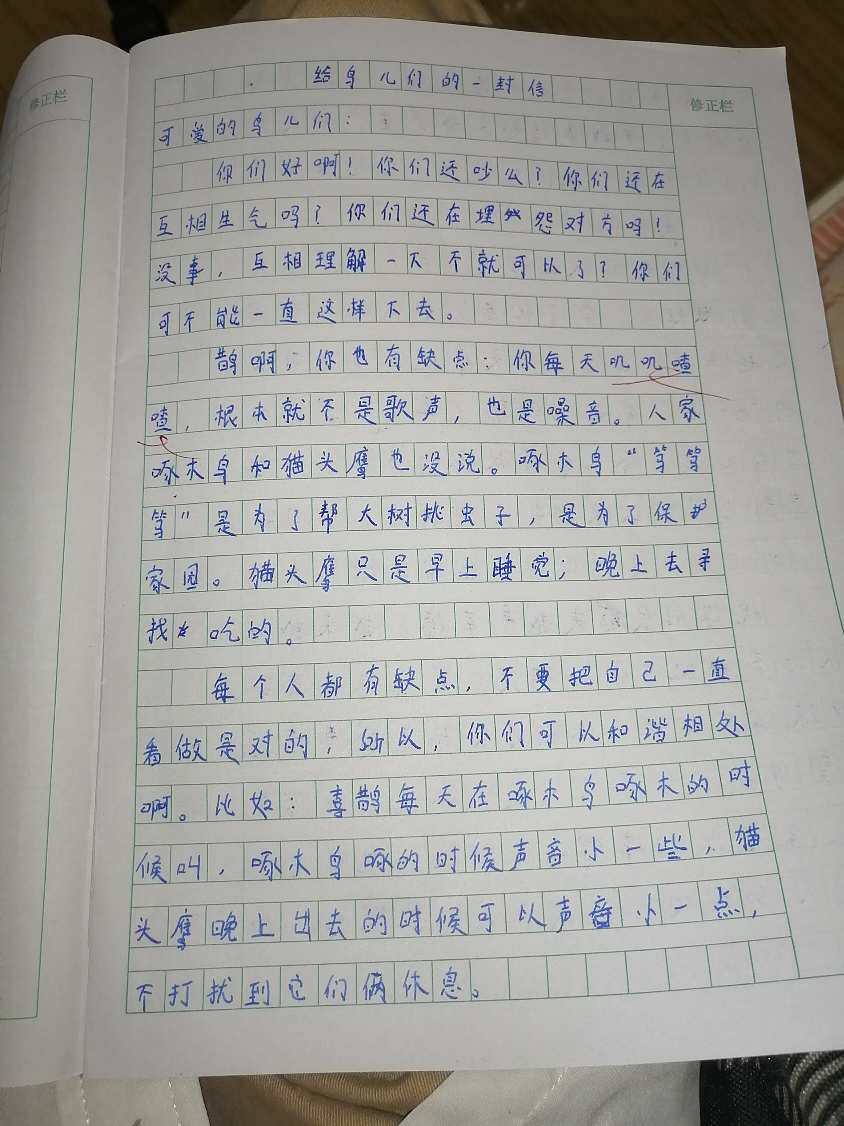 修正栏
给鸟儿们的一封信
修正栏
可爱的鸟儿们：
你们好啊！你们还吵么？你们还在
互相生气吗？你们还在埋怨对方吗！
没事，互相理解一下不就可以了？你们
可不能一直这样下去。
鹊啊，你也有缺点：你每天叽叽喳
喳，根本就不是歌声，也是噪音。人家
啄木鸟和猫头鹰也没说。啄木鸟“笃笃
笃”是为了帮大树挑虫子，是为了保护
家园。猫头鹰只是早上睡觉；晚上去寻
找吃的。
每个人都有缺点，不要把自己一直
看做是对的；所以，你们可以和谐相处
啊。比如：喜鹊每天在啄木鸟啄木的时
候叫，啄木鸟啄的时候声音小一些，猫
头鹰晚上出去的时候可以声音小一点，
不打扰到它们俩休息。